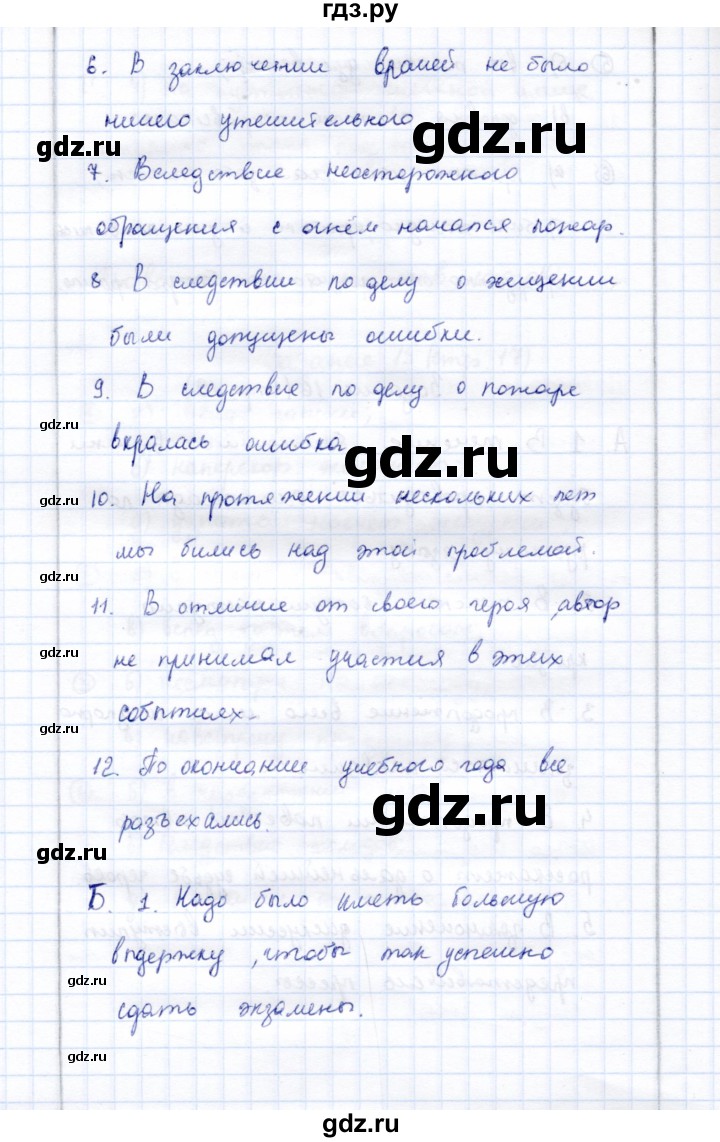 гдз.ру
6. В заключении врачей не было
ничего утешительного.
gdz.ru
gdz.ru
7. Вследствие неосторожного
обращения с огнём начался пожар.
8 В следствии по делу о хищении
были допущены ошибки.
9. В следствие по делу о пожаре
gdz.ru
вкралась ошибка
gdz.ru
10. На протяжении нескольких лет
gdz.ru
мы бились над этой проблемой.
gdz.ru
11. В отличие от своего героя, автор
gdz.ru
не принимал участия в этих
событиях.
12. По окончании учебного года все
gdz.ru
разъехались.
gdz.ru
Б. 1. Надо было иметь большую
выдержку, чтобы так успешно
gdz.ru
сдать экзамены.
gdz.ru
gdz.ru